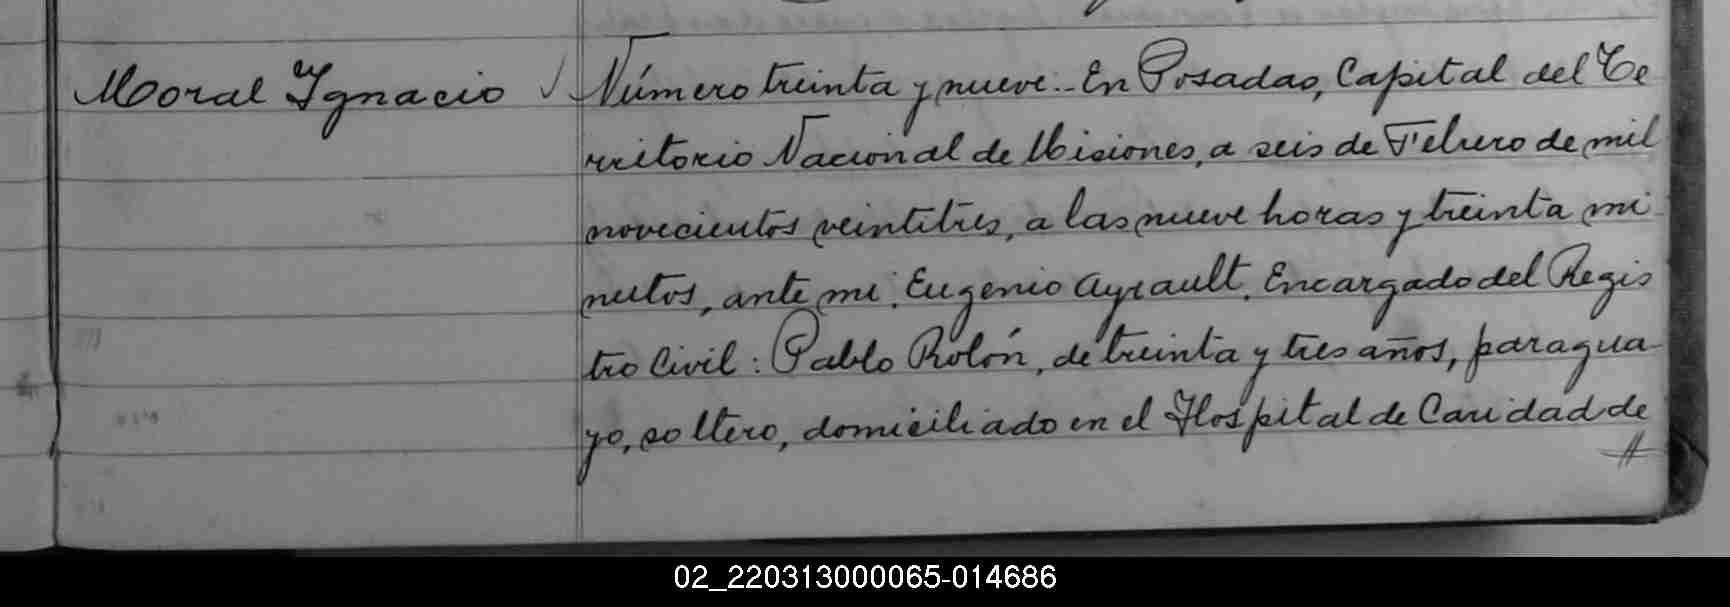 Moral Ignacio √ Número treinta y nueve.- En Posadas, Capital del Te
rritorio Nacional de Misiones, a seis de Febrero de mil
novecientos veintitres, a las nueve horas y treinta mi
nutos, ante mi. Eugenio Ayrault. Encargado del Regis
tro Civil: Pablo Rolón, de treinta y tres años, paragua
yo, soltero, domiciliado en el Hospital de Caridad de
02_220313000065-014686